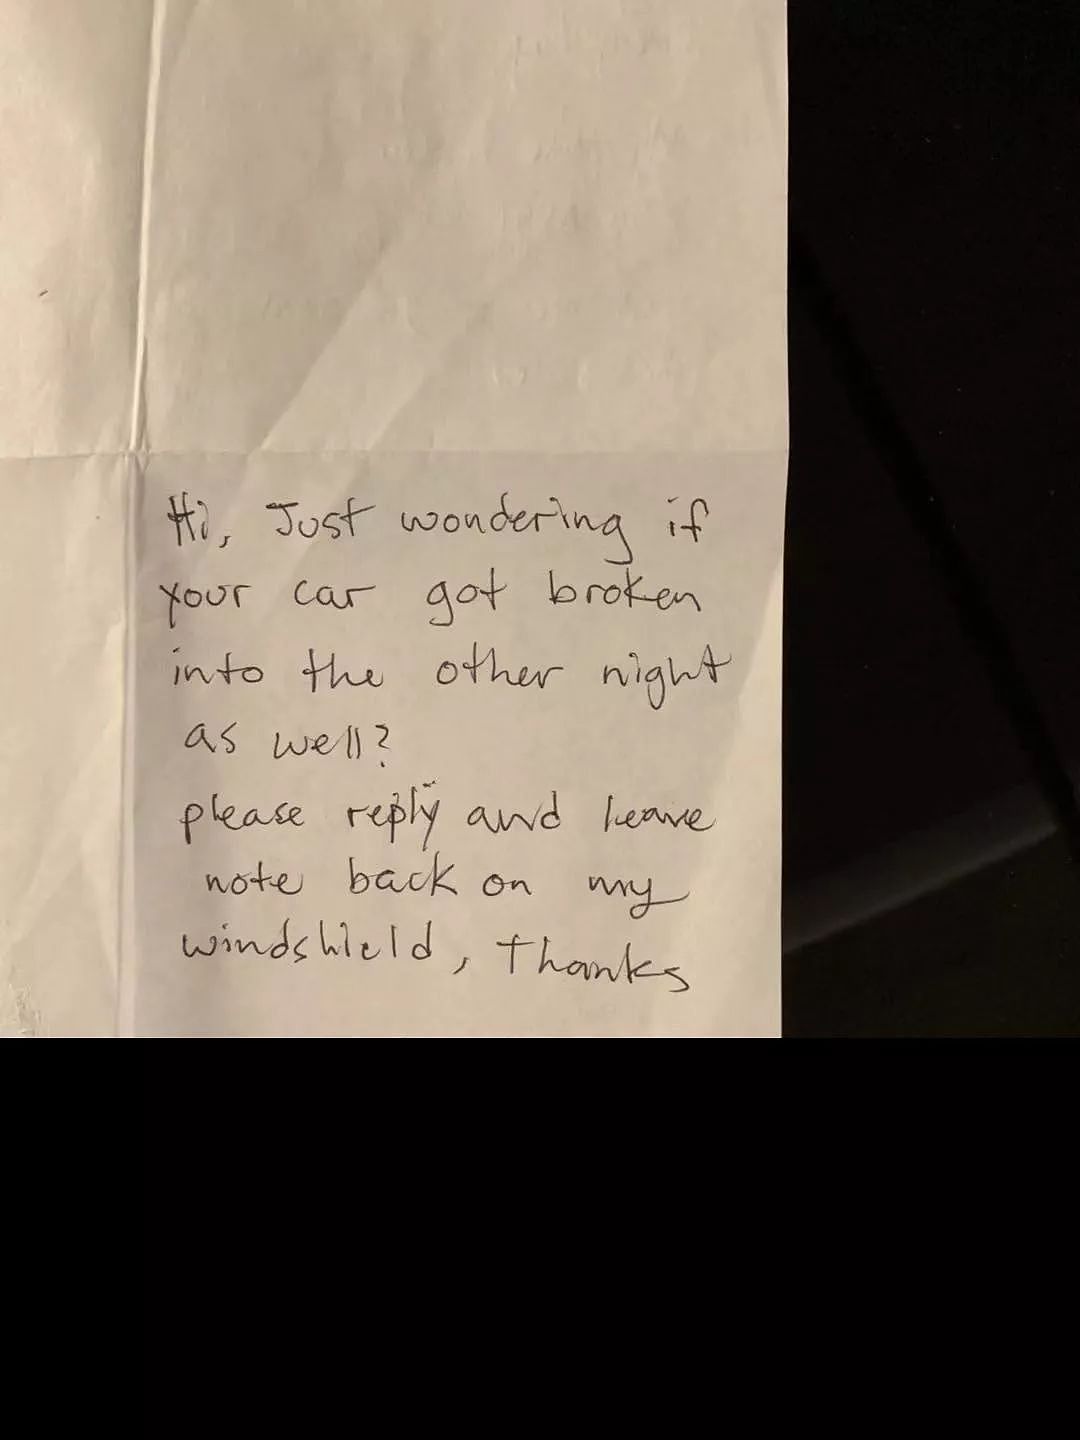 Hi, Just wondering if
your car got broken
into the other night
as well?
please reply and leave
note back on my
windshield, Thanks